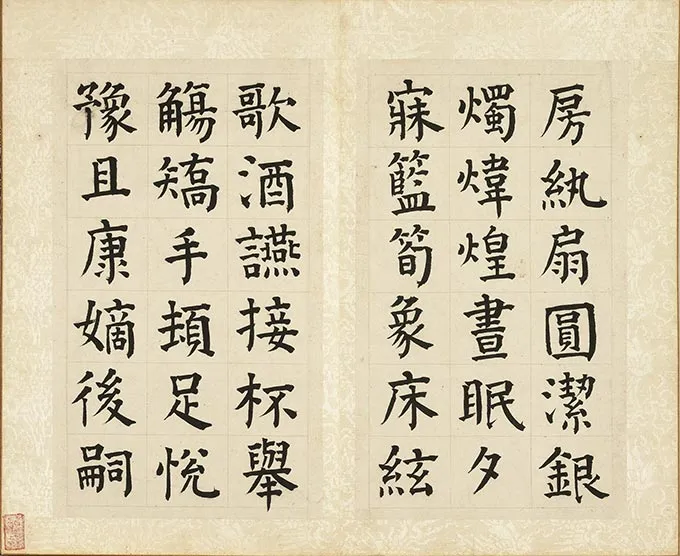 房紈扇圓潔銀
燭煒煌晝眠夕
寐籃筍象床絃
歌酒讌接杯舉
觴矯手頓足悅
豫且康嫡後嗣